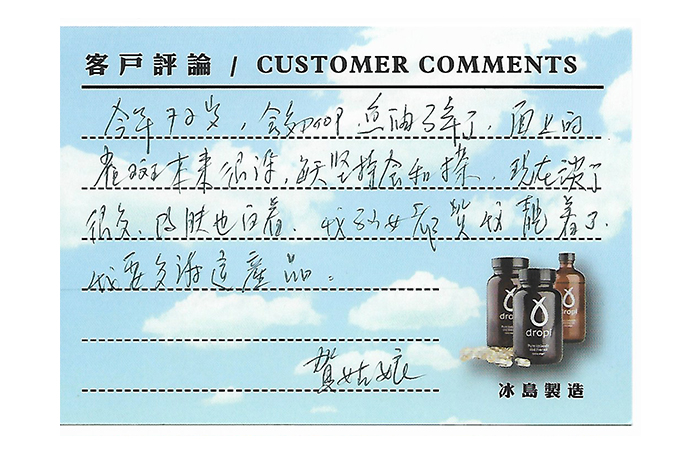 客戶評論 / CUSTOMER COMMENTS
今年72岁，食dropi鱼油3年了，面上的
老斑本来很深，每天坚持食和搽，现在淡了
很多，皮肤也白着，我子女都赞我靓着了，
我要多謝這產品。
賀姑娘
dropi
dropi
冰島製造